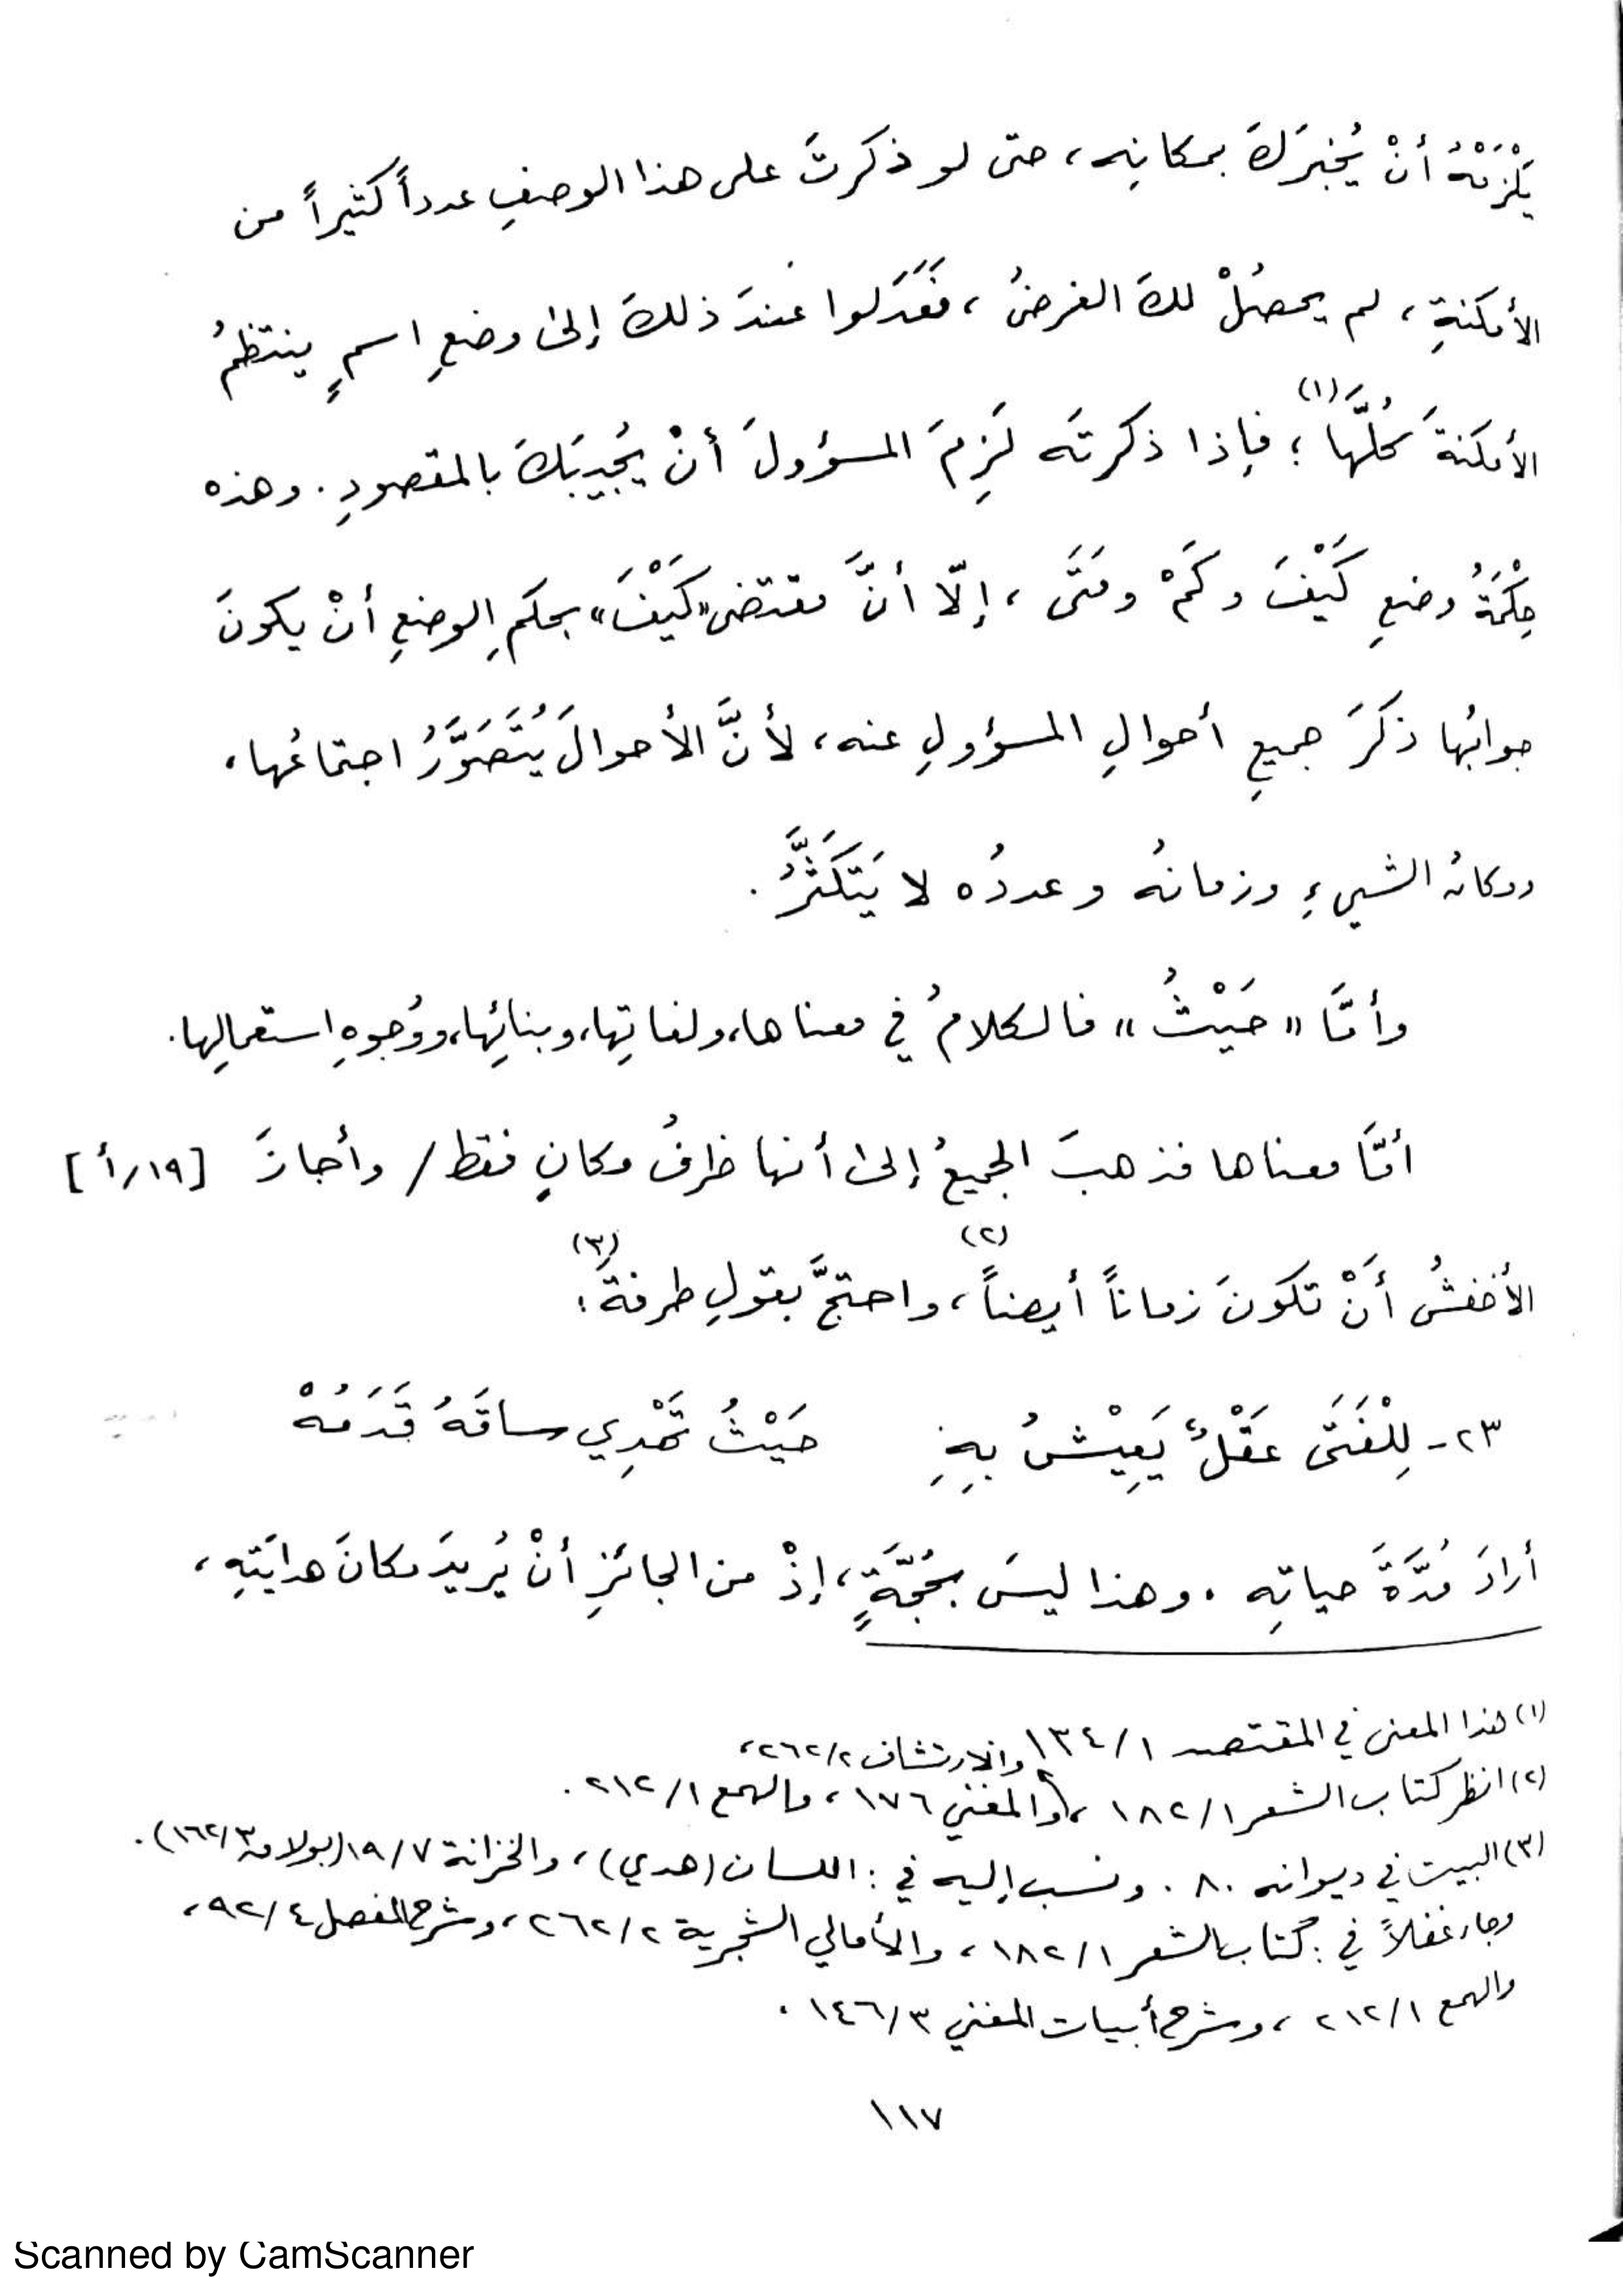 يَلْزَمْهُ أنْ يُخبِرَكَ بمكانِه، حتى لو ذكرتَ على هذا الوصفِ عدداً كثيراً من
الأمكنةِ، لم يحصُلْ لكَ الغرضُ، فَعَدَلوا عندَ ذلكَ إلى وضعِ اسمٍ ينتظمُ
الأمكنةَ كُلَّها(١)؛ فإذا ذكرتَه لَزِمَ المسؤولَ أنْ يُجيبَكَ بالمقصودِ. وهذه
حِكْمَةُ وضعِ كَيْفَ وكَمْ ومَتَى، إلّا أنَّ مقتضى «كَيْفَ» بحكمِ الوضعِ أنْ يكونَ
جوابُها ذكرَ جميعِ أحوالِ المسؤولِ عنه، لأنَّ الأحوالَ يُتَصَوَّرُ اجتماعُها،
ومكانُ الشيءِ وزمانُه وعددُه لا يَتَكَثَّرُ.
وأمّا «حَيْثُ» فالكلامُ في معناها، ولغاتِها، وبنائِها، ووُجوهِ استعمالِها.
أمّا معناها فذهبَ الجميعُ إلى أنها ظرفُ مكانٍ فقط / وأجازَ [١٩/أ]
الأخفشُ أَنْ تكونَ زماناً أيضاً(٢)، واحتجَّ بقولِ طرفةَ(٣):
٢٣- لِلْفَتَى عَقْلٌ يَعِيْشُ بِهِ حَيْثُ تَهْدِي ساقَهُ قَدَمُهْ
أرادَ مُدَّةَ حياتِه. وهذا ليسَ بحُجَّةٍ، إذْ من الجائزِ أنْ يُريدَ مكانَ هدايَتِهِ،
(١) هذا المعنى في المقتصد ١/١٣٤ والارتشاف ٢/٢٦٢،
(٢) انظر كتاب الشعر ١/١٨٢، والمغني ١٧٦، والهمع ١/٢١٢.
(٣) البيت في ديوانه ٨٠. ونسب إليه في: اللسان (هدي)، والخزانة ٧/١٩ (بولاق ٣/١٦٢).
وجاء غفلاً في: كتاب الشعر ١/١٨٢، والأمالي الشجرية ٢/٢٦٢، وشرح المفصل ٤/٩٢،
والهمع ١/٢١٢، وشرح أبيات المغني ٣/١٤٦.
١١٧
Scanned by CamScanner